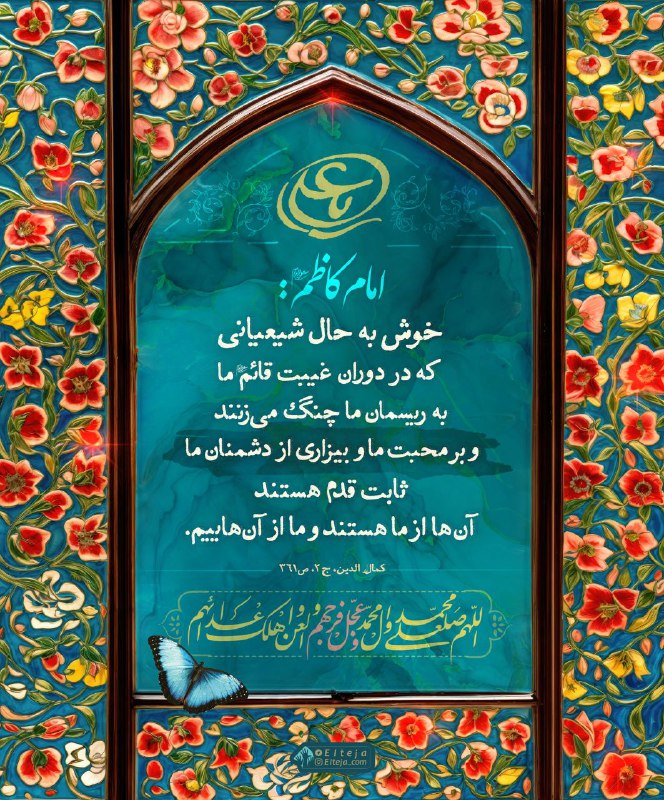 یا علی
امام کاظم علیه‌السلام:
خوش به حال شیعیانی
که در دوران غیبت قائم ما
به ریسمان ما چنگ می‌زنند
و بر محبت ما و بیزاری از دشمنان ما
ثابت قدم هستند
آن‌ها از ما هستند و ما از آن‌هاییم.
کمال الدین، ج۲، ص۳۶۱
اللهم صل علی محمد وآل محمد وعجل فرجهم والعن واهلک اعدائهم
Elteja
Elteja_com